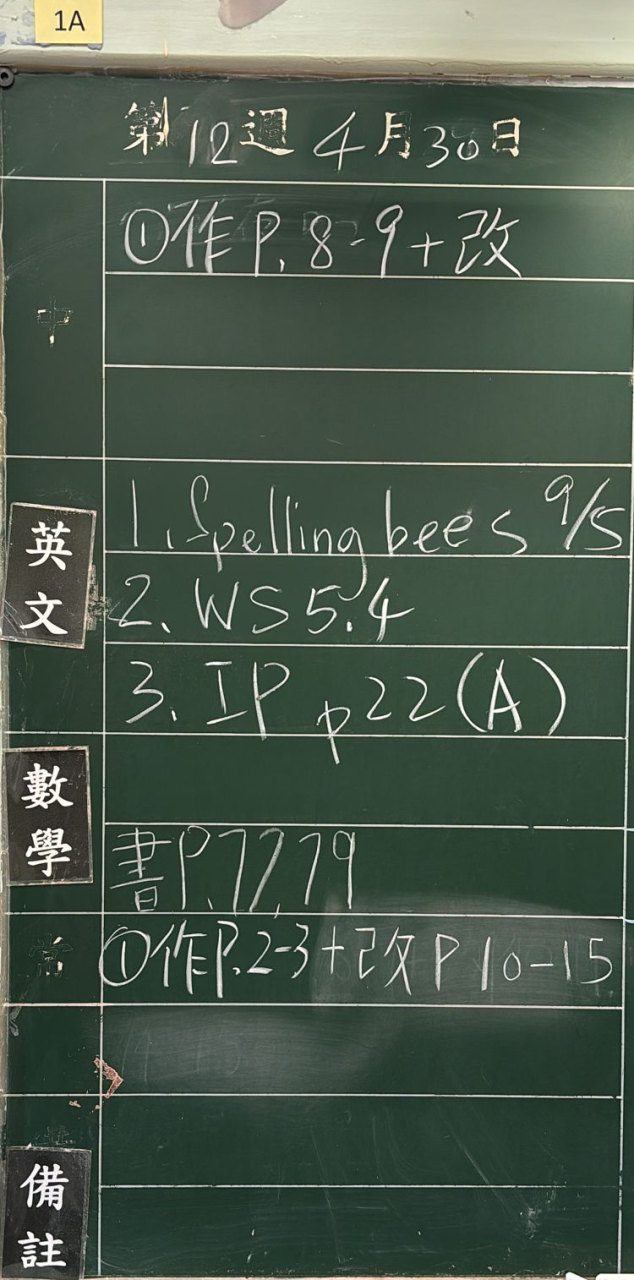 1A
第12週4月30日
中
①作P.8-9+改
英文
1.Spelling bees 9/5
2. WS 5.4
3. IP p22(A)
數學
書P.77,79
常
①作P.2-3+改P10-15
備註